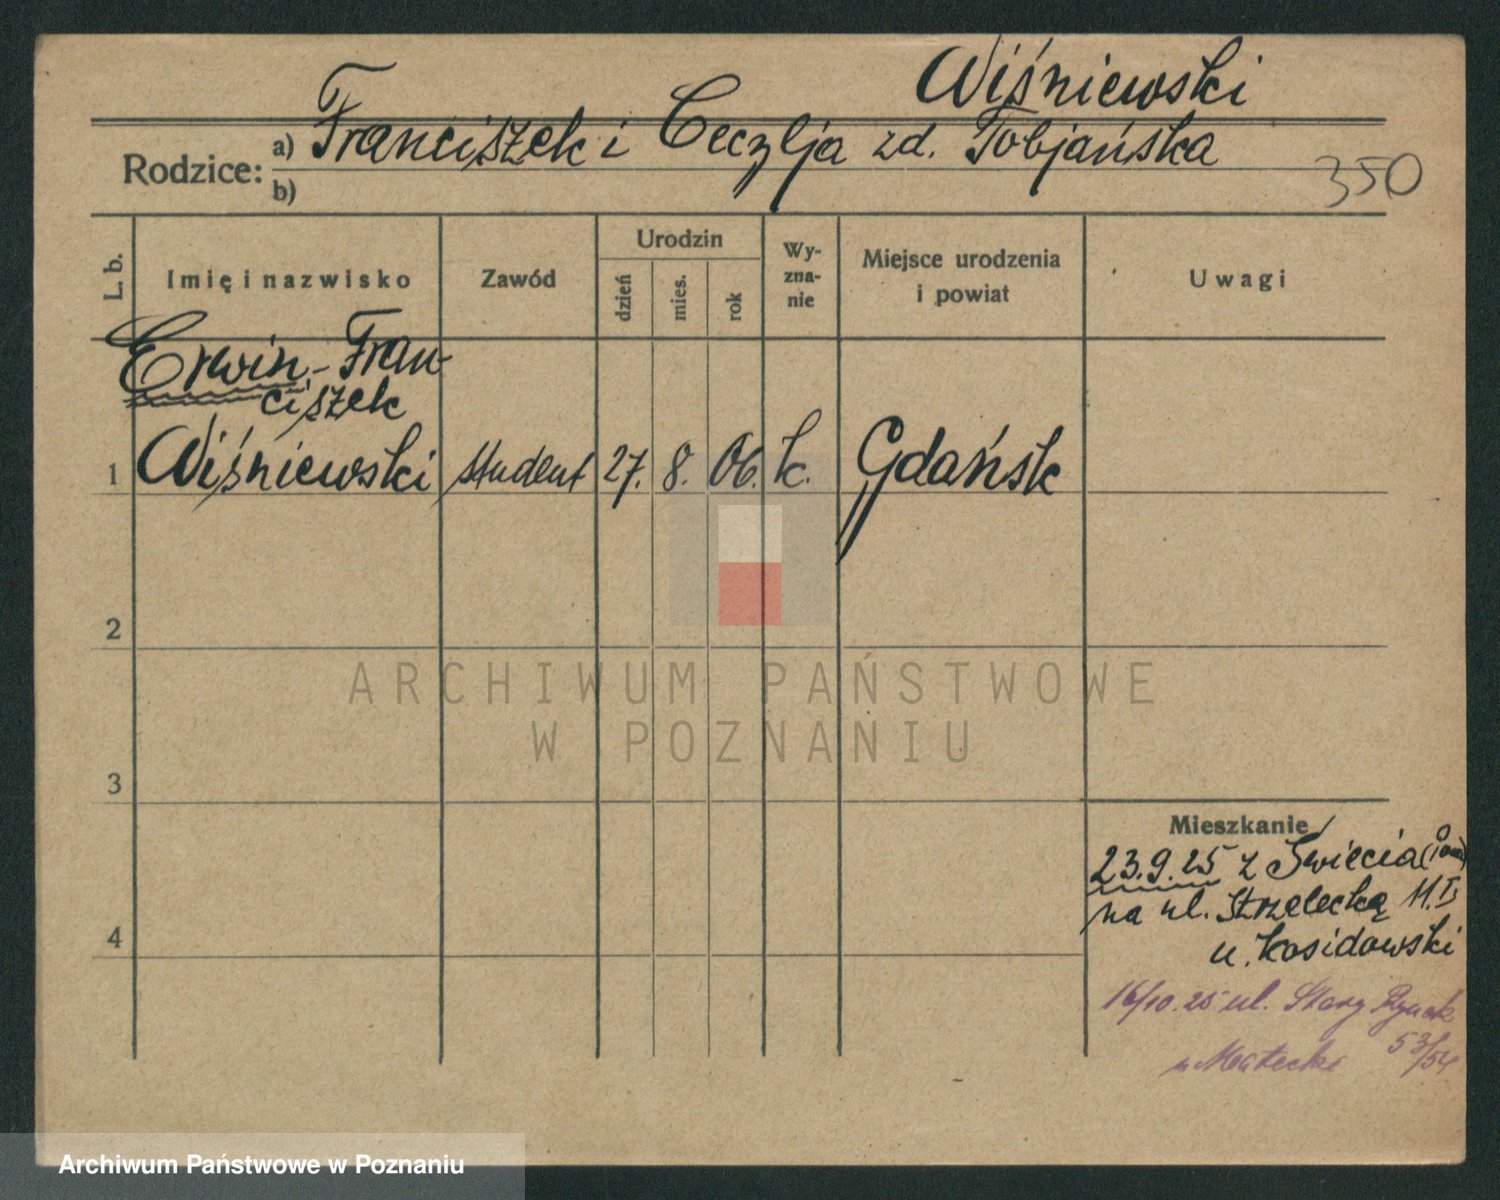 Wiśniewski
Rodzice: a) Franciszek i Cecylja zd. Tobjańska
b)
350
L. b.
Imię i nazwisko
Zawód
Urodzin
dzień
mies.
rok
Wy-
zna-
nie
Miejsce urodzenia
i powiat
Uwagi
Erwin - Fran-
ciszek
1 Wiśniewski student 27. 8. 06. k. Gdańsk
2
ARCHIWUM PAŃSTWOWE
W POZNANIU
3
Mieszkanie
23.9.25 z Świecia
na ul. Strzelecką 11. I
u. Kosidowski
4
16/10. 25 ul. Stary Rynek
53/54
Archiwum Państwowe w Poznaniu